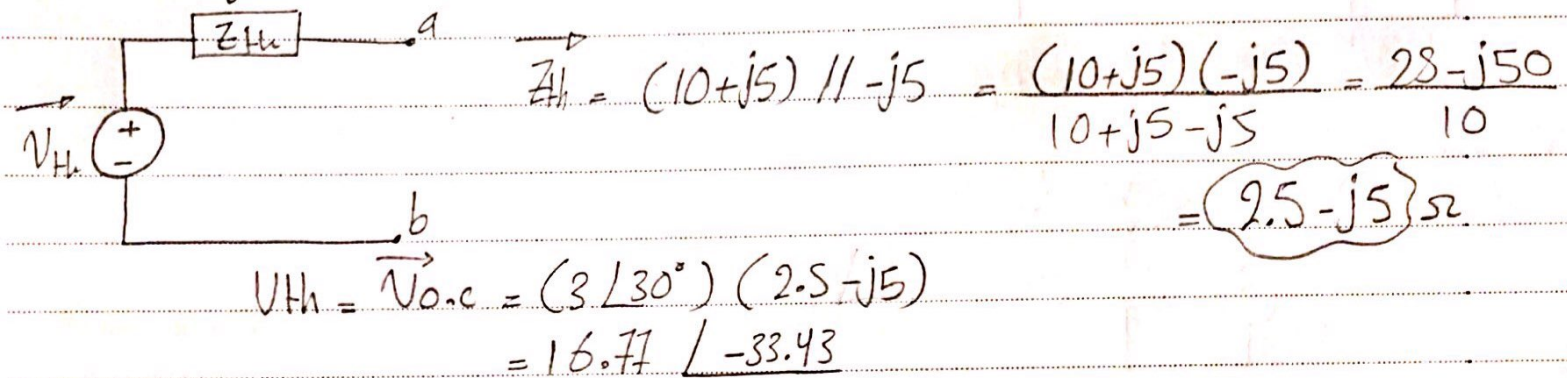 Z_th a
Z_th = (10+j5) // -j5 = (10+j5)(-j5) / 10+j5-j5 = 25-j50 / 10
V_th + -
= 2.5-j5 Ω
b
V_th = V_o.c = (3∠30°) (2.5-j5)
= 16.77 ∠-33.43